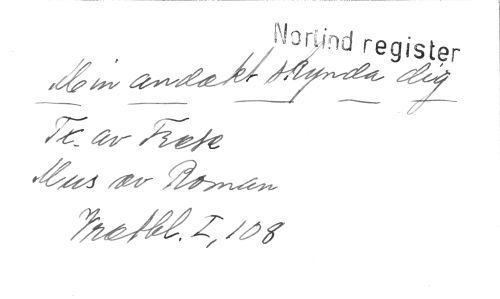 Norlind register
Min andakt skynda dig
Tx. av Frese
Mus av Roman
Kretbl. I, 108